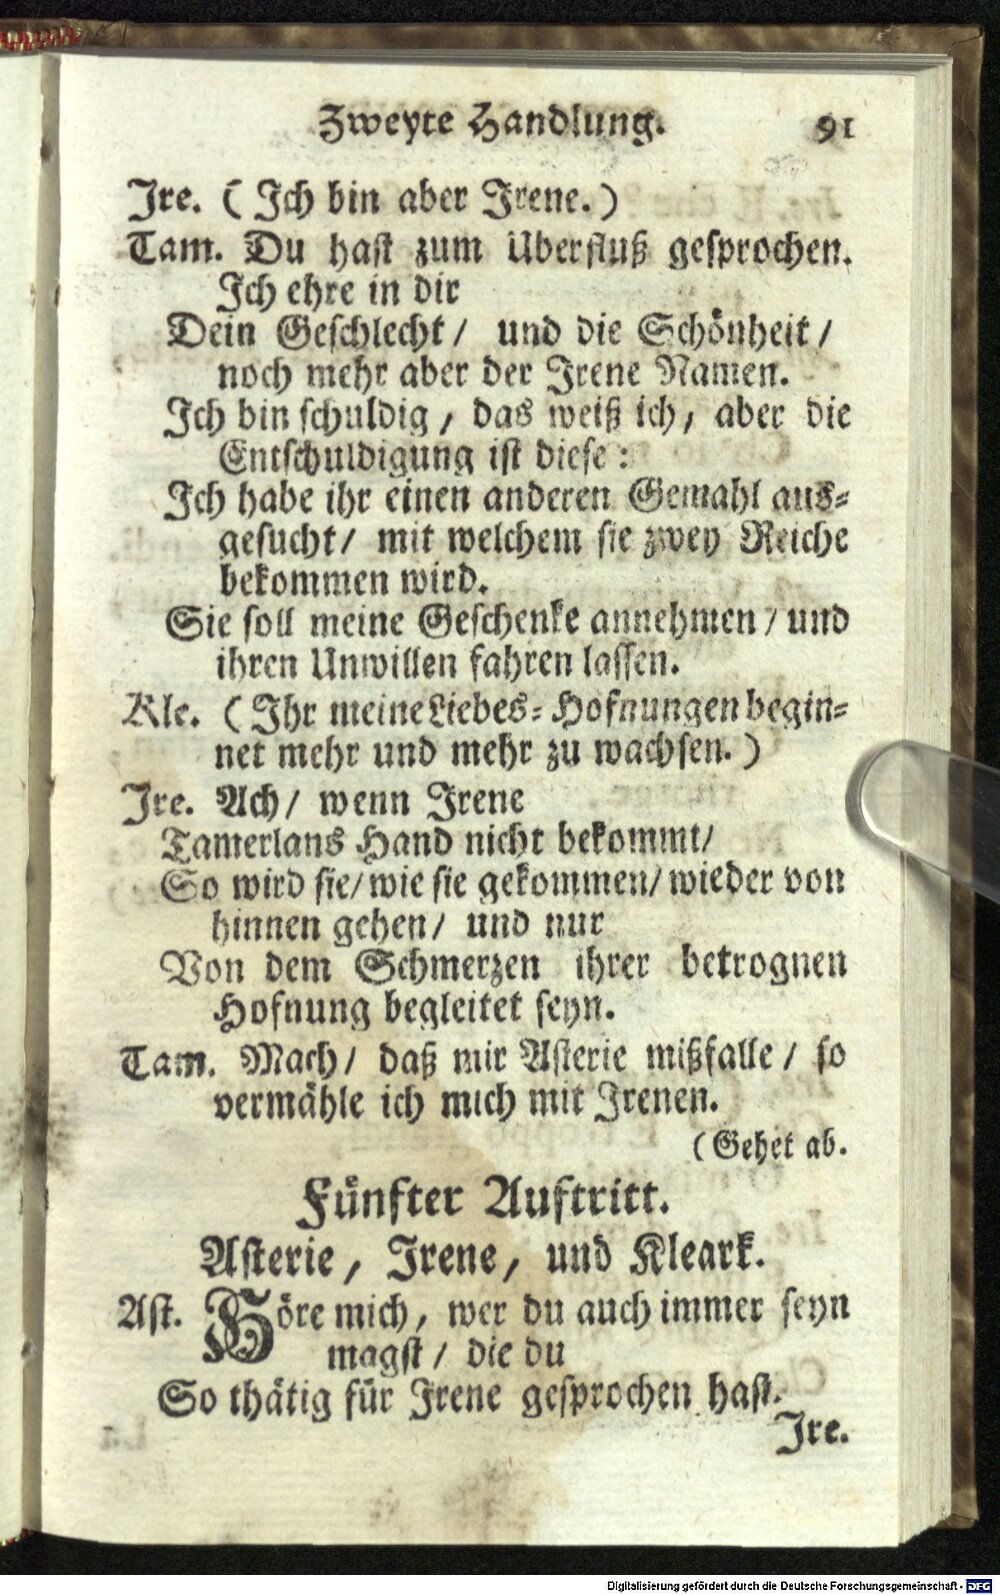 Zweyte Handlung. 91
Ire. (Ich bin aber Irene.)
Tam. Du hast zum Uberfluß gesprochen.
Ich ehre in dir
Dein Geschlecht/ und die Schönheit/
noch mehr aber der Irene Namen.
Ich bin schuldig, das weiß ich, aber die
Entschuldigung ist diese:
Ich habe ihr einen anderen Gemahl aus-
gesucht/ mit welchem sie zwey Reiche
bekommen wird.
Sie soll meine Geschenke annehmen/ und
ihren Unwillen fahren lassen.
Kle. (Ihr meine Liebes-Hofnungen begin-
net mehr und mehr zu wachsen.)
Ire. Ach/ wenn Irene
Tamerlans Hand nicht bekommt/
So wird sie/ wie sie gekommen/ wieder von
hinnen gehen/ und nur
Von dem Schmerzen ihrer betrognen
Hofnung begleitet seyn.
Tam. Mach/ daß mir Asterie mißfalle/ so
vermähle ich mich mit Irenen.
(Gehet ab.
Fünfter Auftritt.
Asterie, Irene, und Kleark.
Ast. Höre mich, wer du auch immer seyn
magst/ die du
So thätig für Irene gesprochen hast.
Ire.
Digitalisierung gefördert durch die Deutsche Forschungsgemeinschaft - DFG